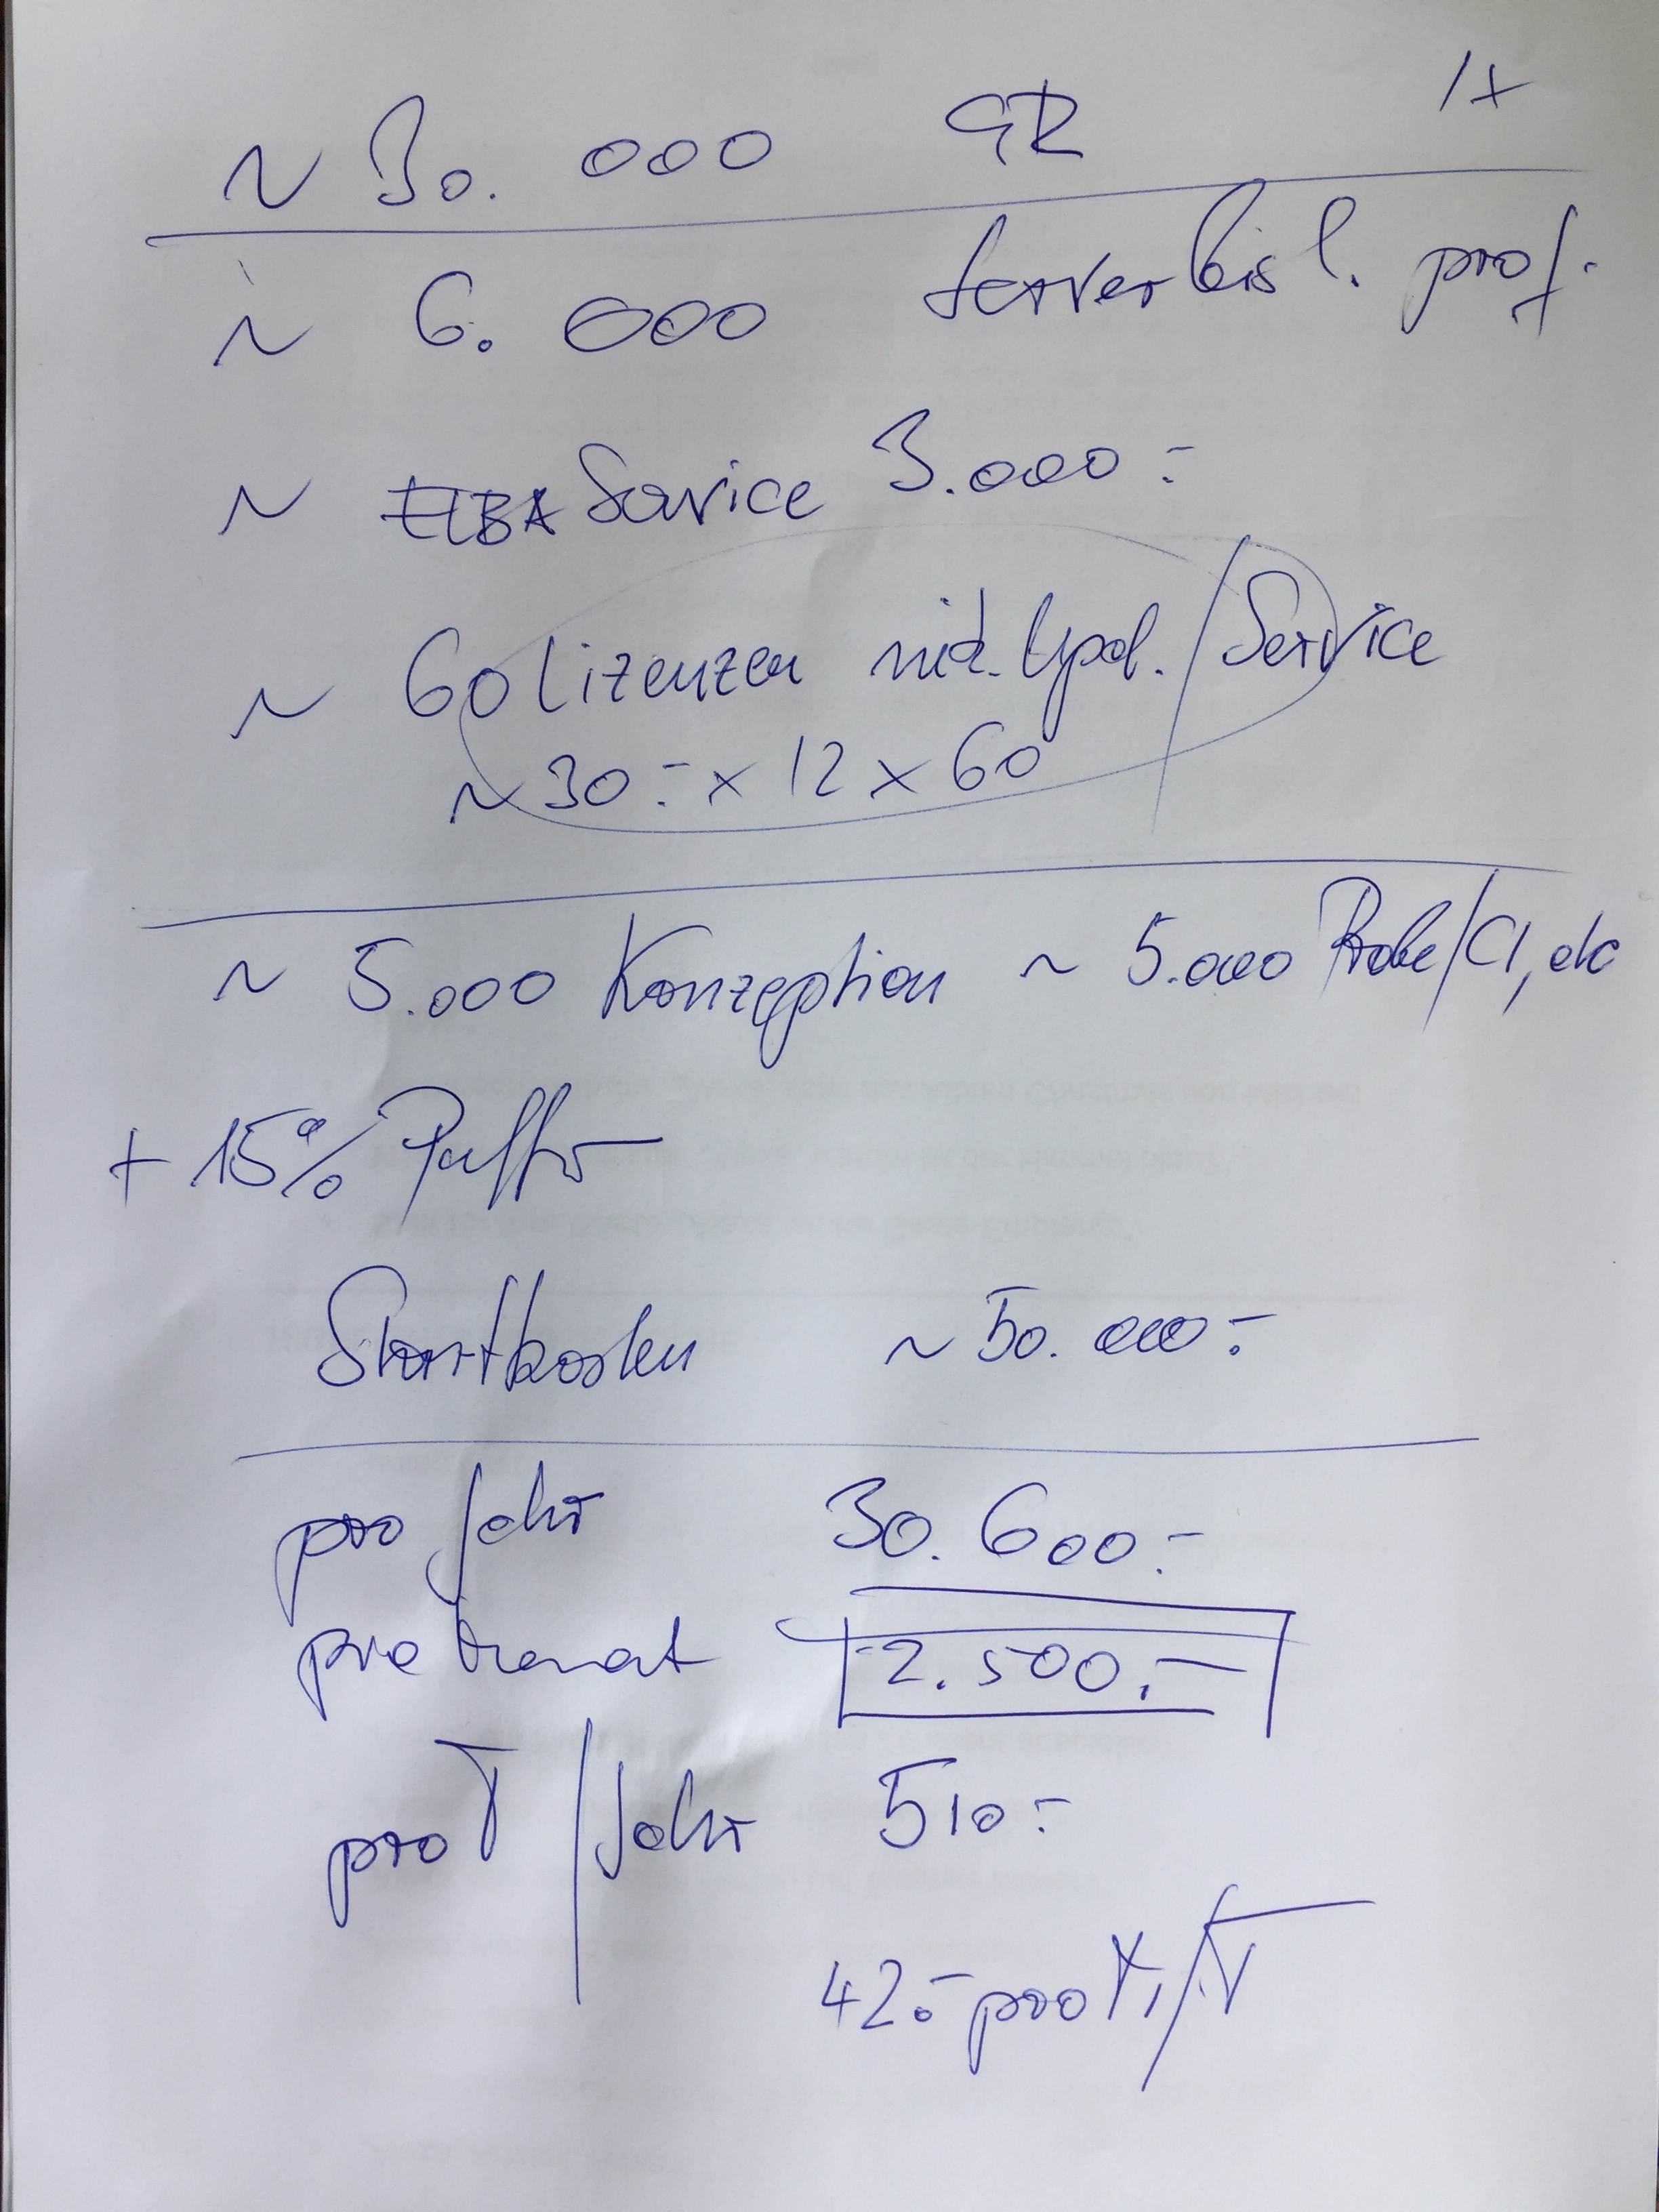 ~ 30.000 GR 1x
~ 6.000 Serverleistl. prof.
~ ELBA Service 3.000.-
~ 60 Lizenzen Upd./Service
~ 30.- x 12 x 60
~ 5.000 Konzeption ~ 5.000 /CI, etc
+ 15% Puffer
Startkosten ~ 50.000.-
pro Jahr 30.600.-
pro Monat 2.500.-
pro T/Jahr 510.-
42.- pro M/T